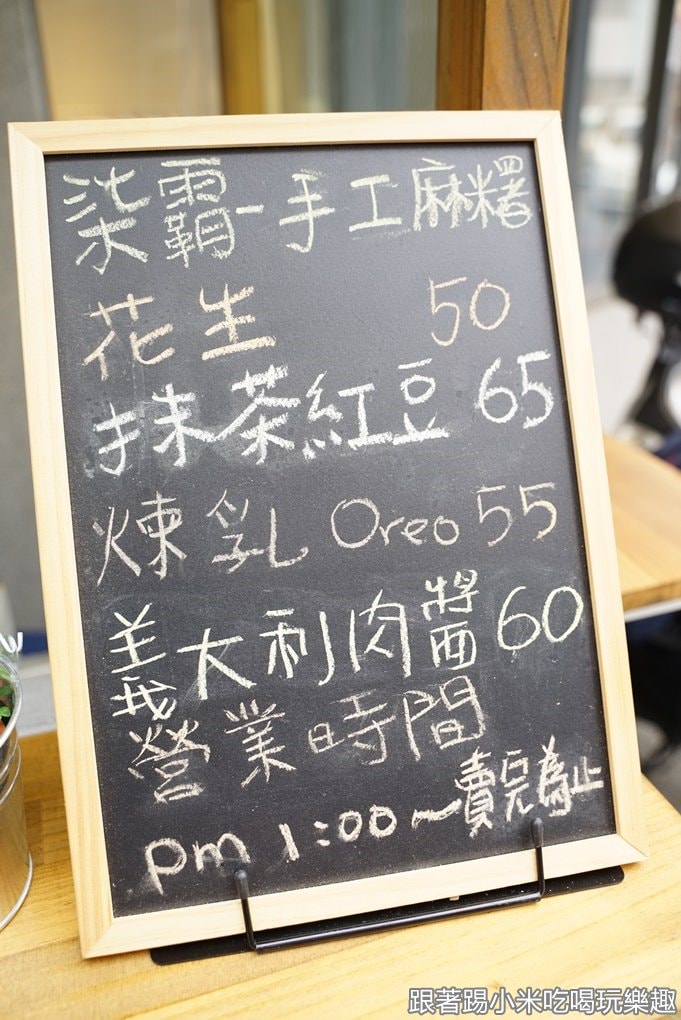 柒霸-手工麻糬
花生 50
抹茶紅豆 65
煉乳 Oreo 55
義大利肉醬 60
營業時間
pm 1:00~賣完為止
跟著踢小米吃喝玩樂趣